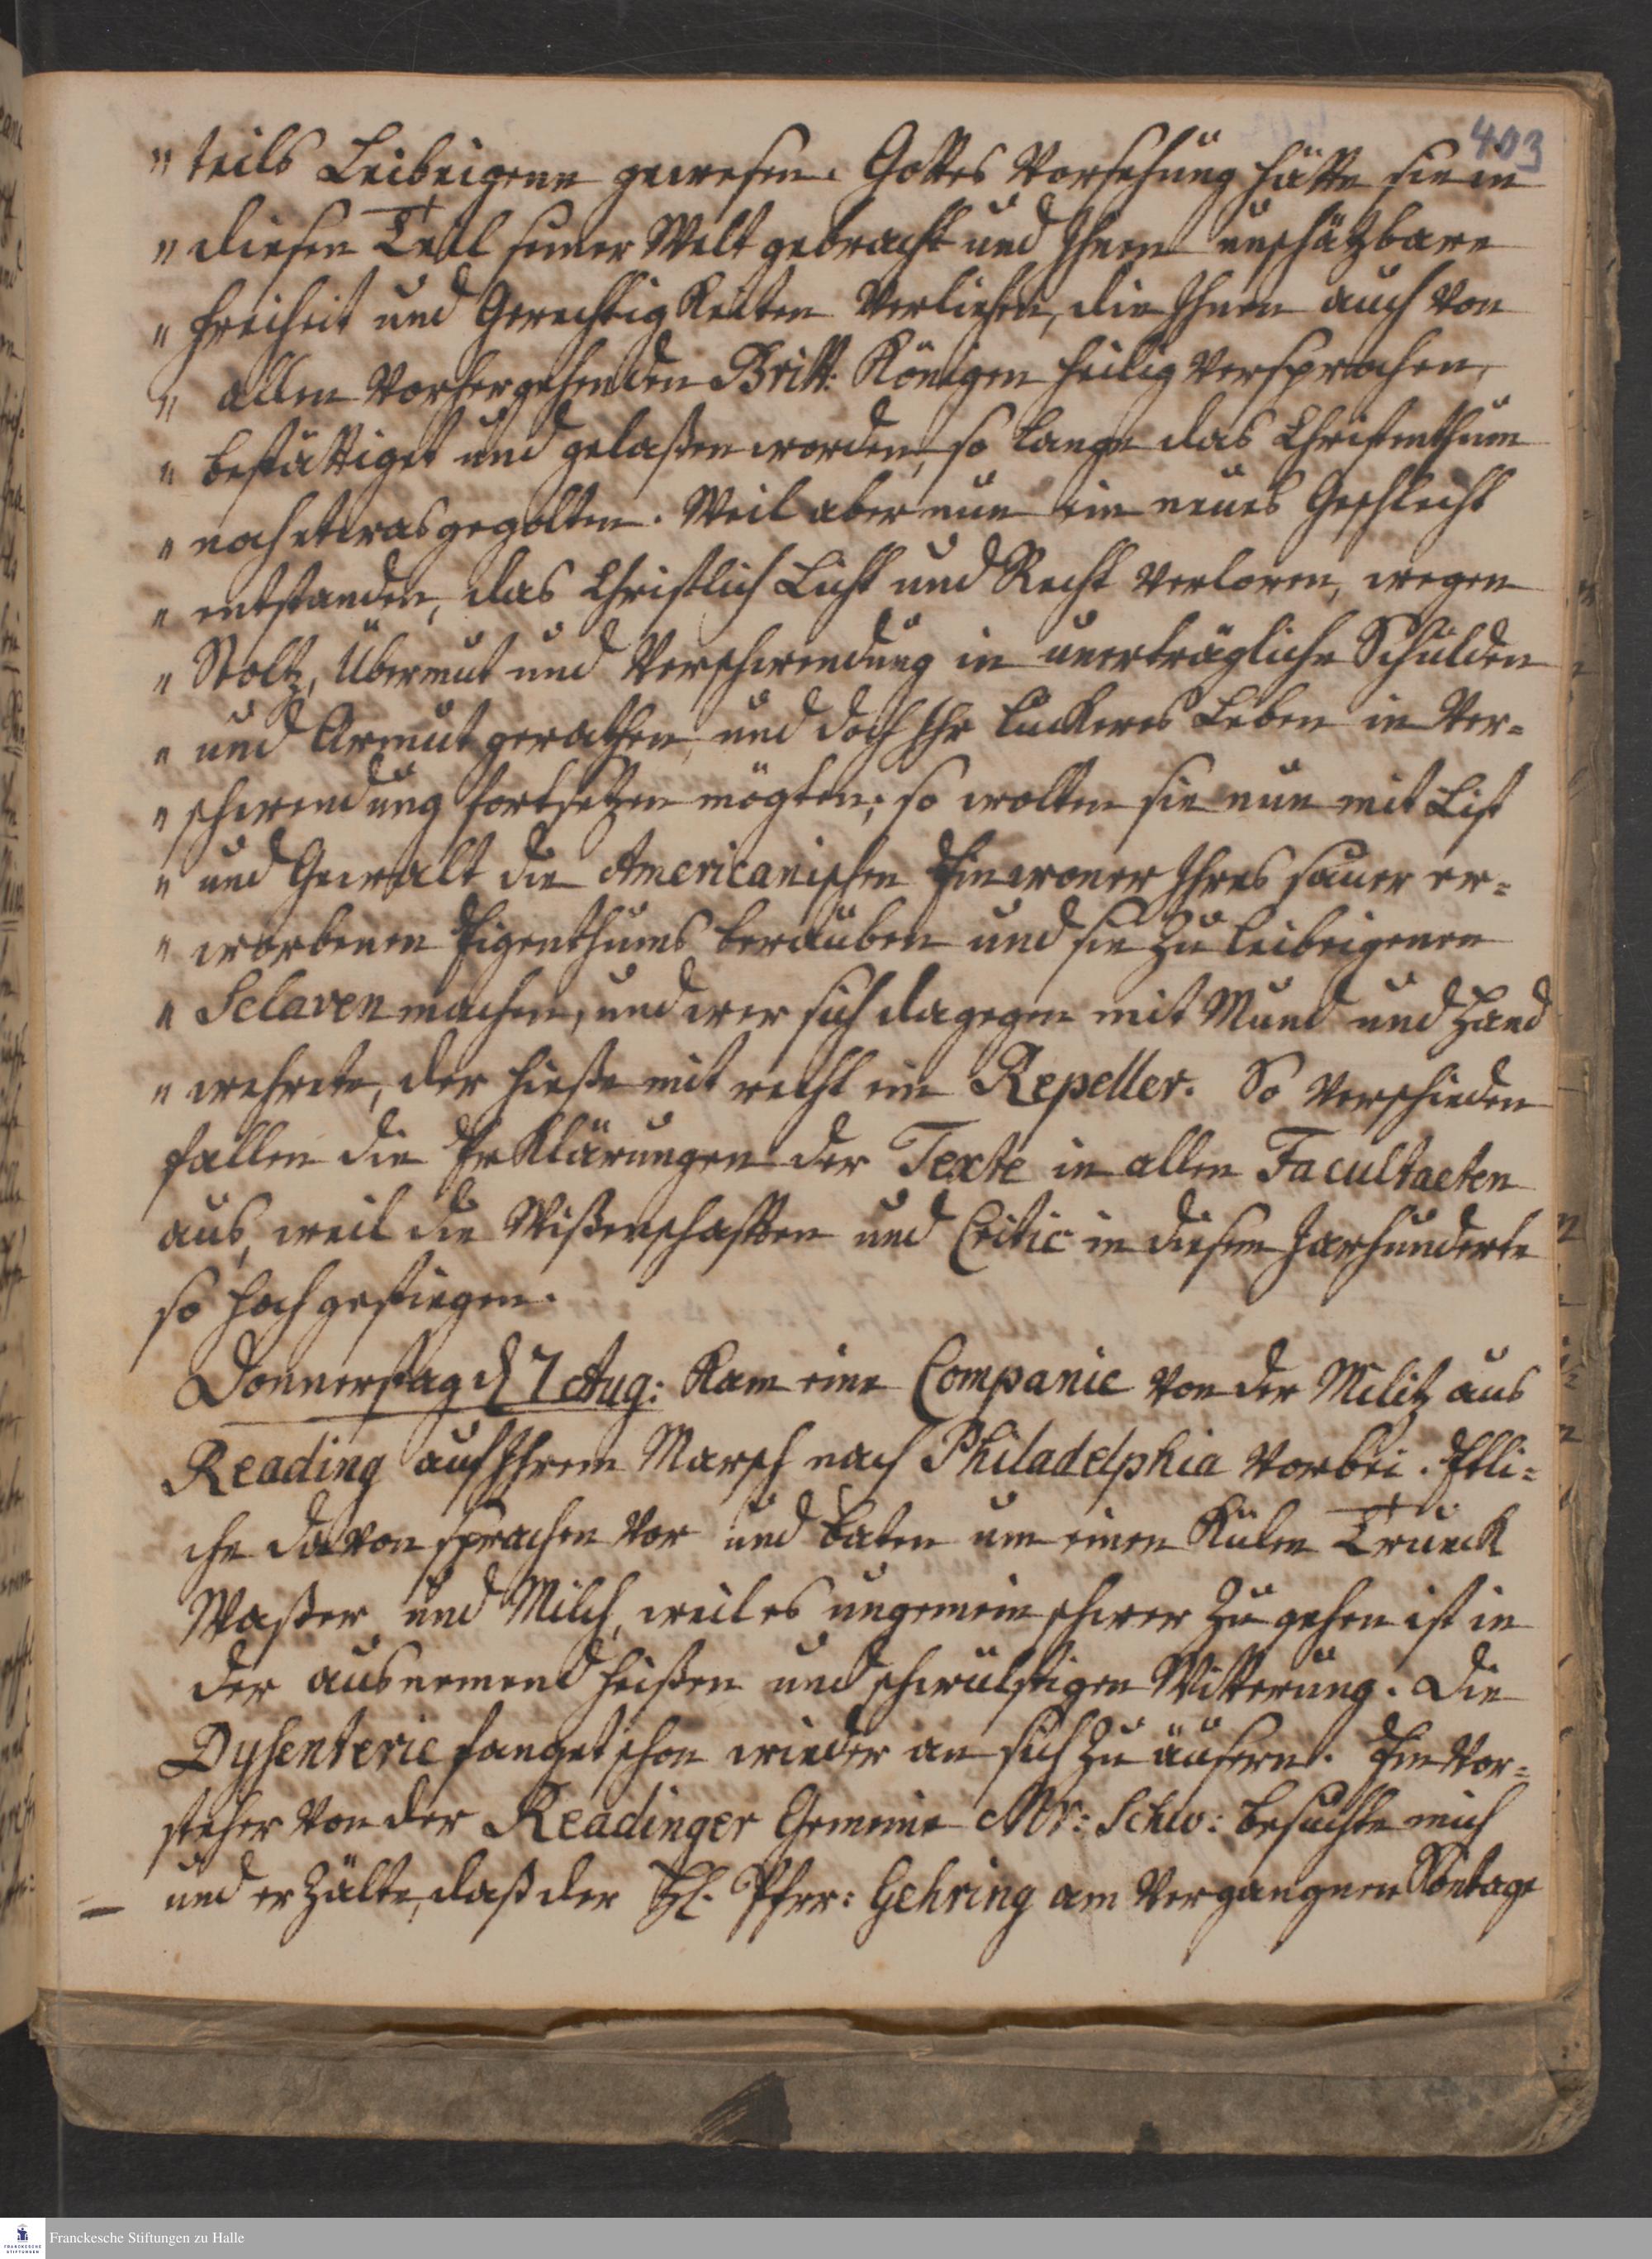 403
" teils Leibeigene gewesen. Gottes Vorsehung hätte sie in
" diesen Teil seiner Welt gebracht und Ihnen unschätzbare
" Freiheit und Gerechtigkeiten verliehen, die Ihnen auch von
" allen vorhergehenden Britt: Königen heilig versprochen,
" bestättiget und gelaßen worden, so lange das Christenthum
" noch etwas gegolten. Weil aber nun ein neues Geschlecht
" entstanden, das Christlich Licht und Recht verloren, wegen
" Stoltz, Übermut und Verschwendung in unerträgliche Schulden
" und Armut gerathen, und doch Ihr luckeres Leben in Ver=
" schwendung fortsetzen mögten; so wolten sie nun mit List
" und Gewalt die Americanischen Einwoner Ihres sauer er=
" worbenen Eigenthums berauben und sie zu leibeigenen
" Sclaven machen, und wer sich dagegen mit Mund und Hand
" wehrete, der hieße mit recht ein Repeller. So verschieden
fallen die Erklärungen der Texte in allen Facultaeten
aus, weil die Wißenschafften und Critic in diesem Jarhunderte
so hoch gestiegen.
Donnerstag d 7 Aug: kam eine Companie von der Militz aus
Reading auf Ihrem Marsch nach Philadelphia vorbei. Etli=
che davon sprachen vor und baten um einen külen Trunck
Waßer und Milch, weil es ungemein schwer zu gehen ist in
der ausnemend heißen und schwülstigen Witterung. Die
Dysenterie fanget schon wieder an sich zu äusern. Ein Vor=
steher von der Readinger Gemeine Mr: Schw: besuchte mich
und erzälte, daß der H. Pfrr: Gehring am vergangnen Sontage
Franckesche Stiftungen zu Halle